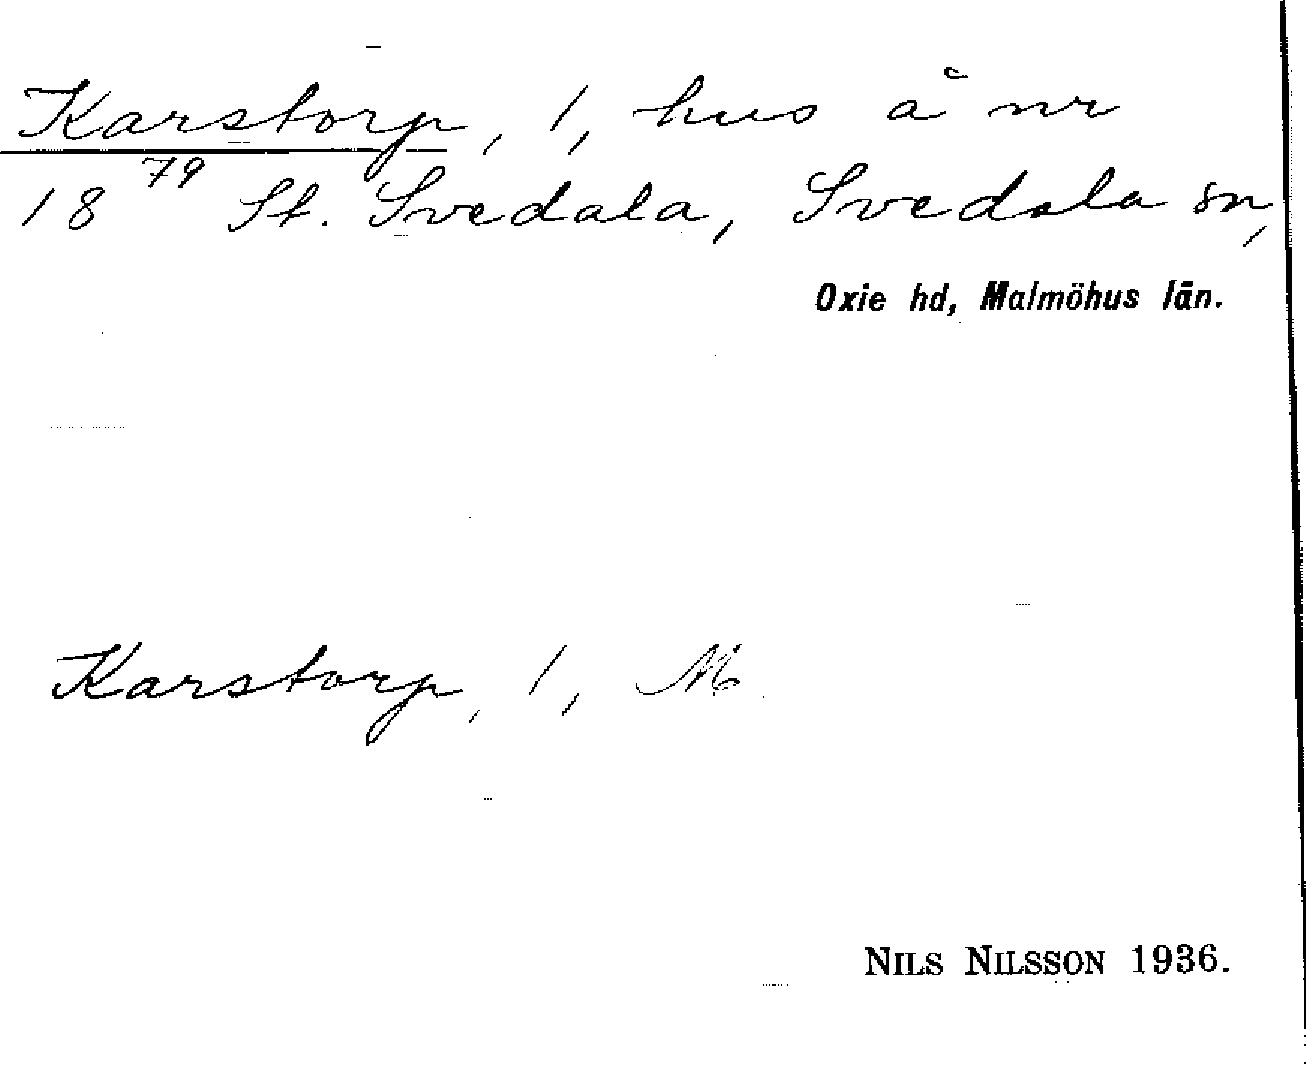 Karstorp, 1, hus å nr
18⁷⁹ St. Svedala, Svedala sn,
Oxie hd, Malmöhus län.
Karstorp, 1, M
NILS NILSSON 1936.